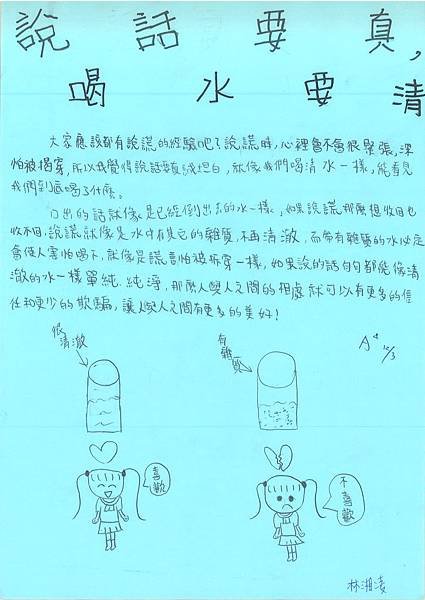 說話要真,
喝水要清
大家應該都有說謊的經驗吧?說謊時,心裡會不會很緊張,深
怕被揭穿,所以我覺得說話要真誠坦白,就像我們喝清水一樣,能看見
我們到底喝了什麼。
口出的話就像是已經倒出去的水一樣,如果說謊那麼想收回也
收不回,說謊就像是水中有其它的雜質,不再清澈,而帶有雜質的水必定
會使人害怕喝下,就像是謊言怕被拆穿一樣,如果說的話句句都能像清
澈的水一樣單純.純淨,那麼人與人之間的相處就可以有更多的信
任和更少的欺騙,讓人與人之間有更多的美好!
很清澈
有雜質
A+
12/3
喜歡
不喜歡
林湘淩